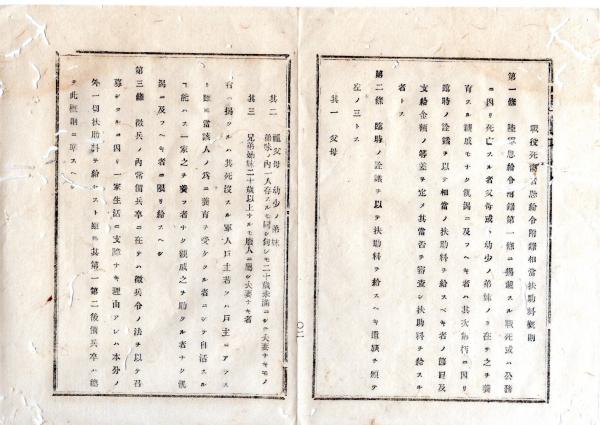 戰役死傷者恩給令附錄相當扶助料槪則
第一條 陸軍恩給令附錄第一條ニ揭載スル戰死或ハ公務
ニ因リ死亡スル者父母或ハ幼少ノ弟妹ノミ在テ之ヲ養
育スル親戚モナク飢渴ニ及フヘキ者ハ其次第ニ因リ
臨時ノ詮議ヲ以テ相當ノ扶助料ヲ給スヘキ者ノ節目及
支給金額ノ等差ヲ定メ其當否ヲ審査シ扶助料ヲ給スル
者トス
第二條 臨時ノ詮議ヲ以テ扶助料ヲ給スヘキ遺族ヲ類テ
左ノ三トス
其一 父母
其二 祖父母 幼少ノ弟妹
弟妹ノ內一人存スルモ同シ
二十歲未滿ニシテ夫妻ナキモノ
其三 兄弟姉妹二十歲以上ナルモ廢人ニ屬シ夫妻ナキ者
右ニ揭クルハ其死沒スル軍人戶主若クハ戶主ニアラス
ト雖モ當該人ノ爲ニ養育ヲ受ケタル者ニシテ自活スル
能ハス一家之ヲ養フ者ナク親戚之ヲ助クル者ナク飢
渴ニ及フヘキ者ニ限リ給スヘシ
第三條 徵兵ノ內常備兵卒ニ在テハ徵兵令ノ法ヲ以テ召
募シタルニ因リ一家生活ニ支障ナキ理由アレハ本分ノ
外一切扶助料ヲ給セスト雖モ其第一第二後備兵卒ハ總
テ此槪則ニ準スヘシ
二〇